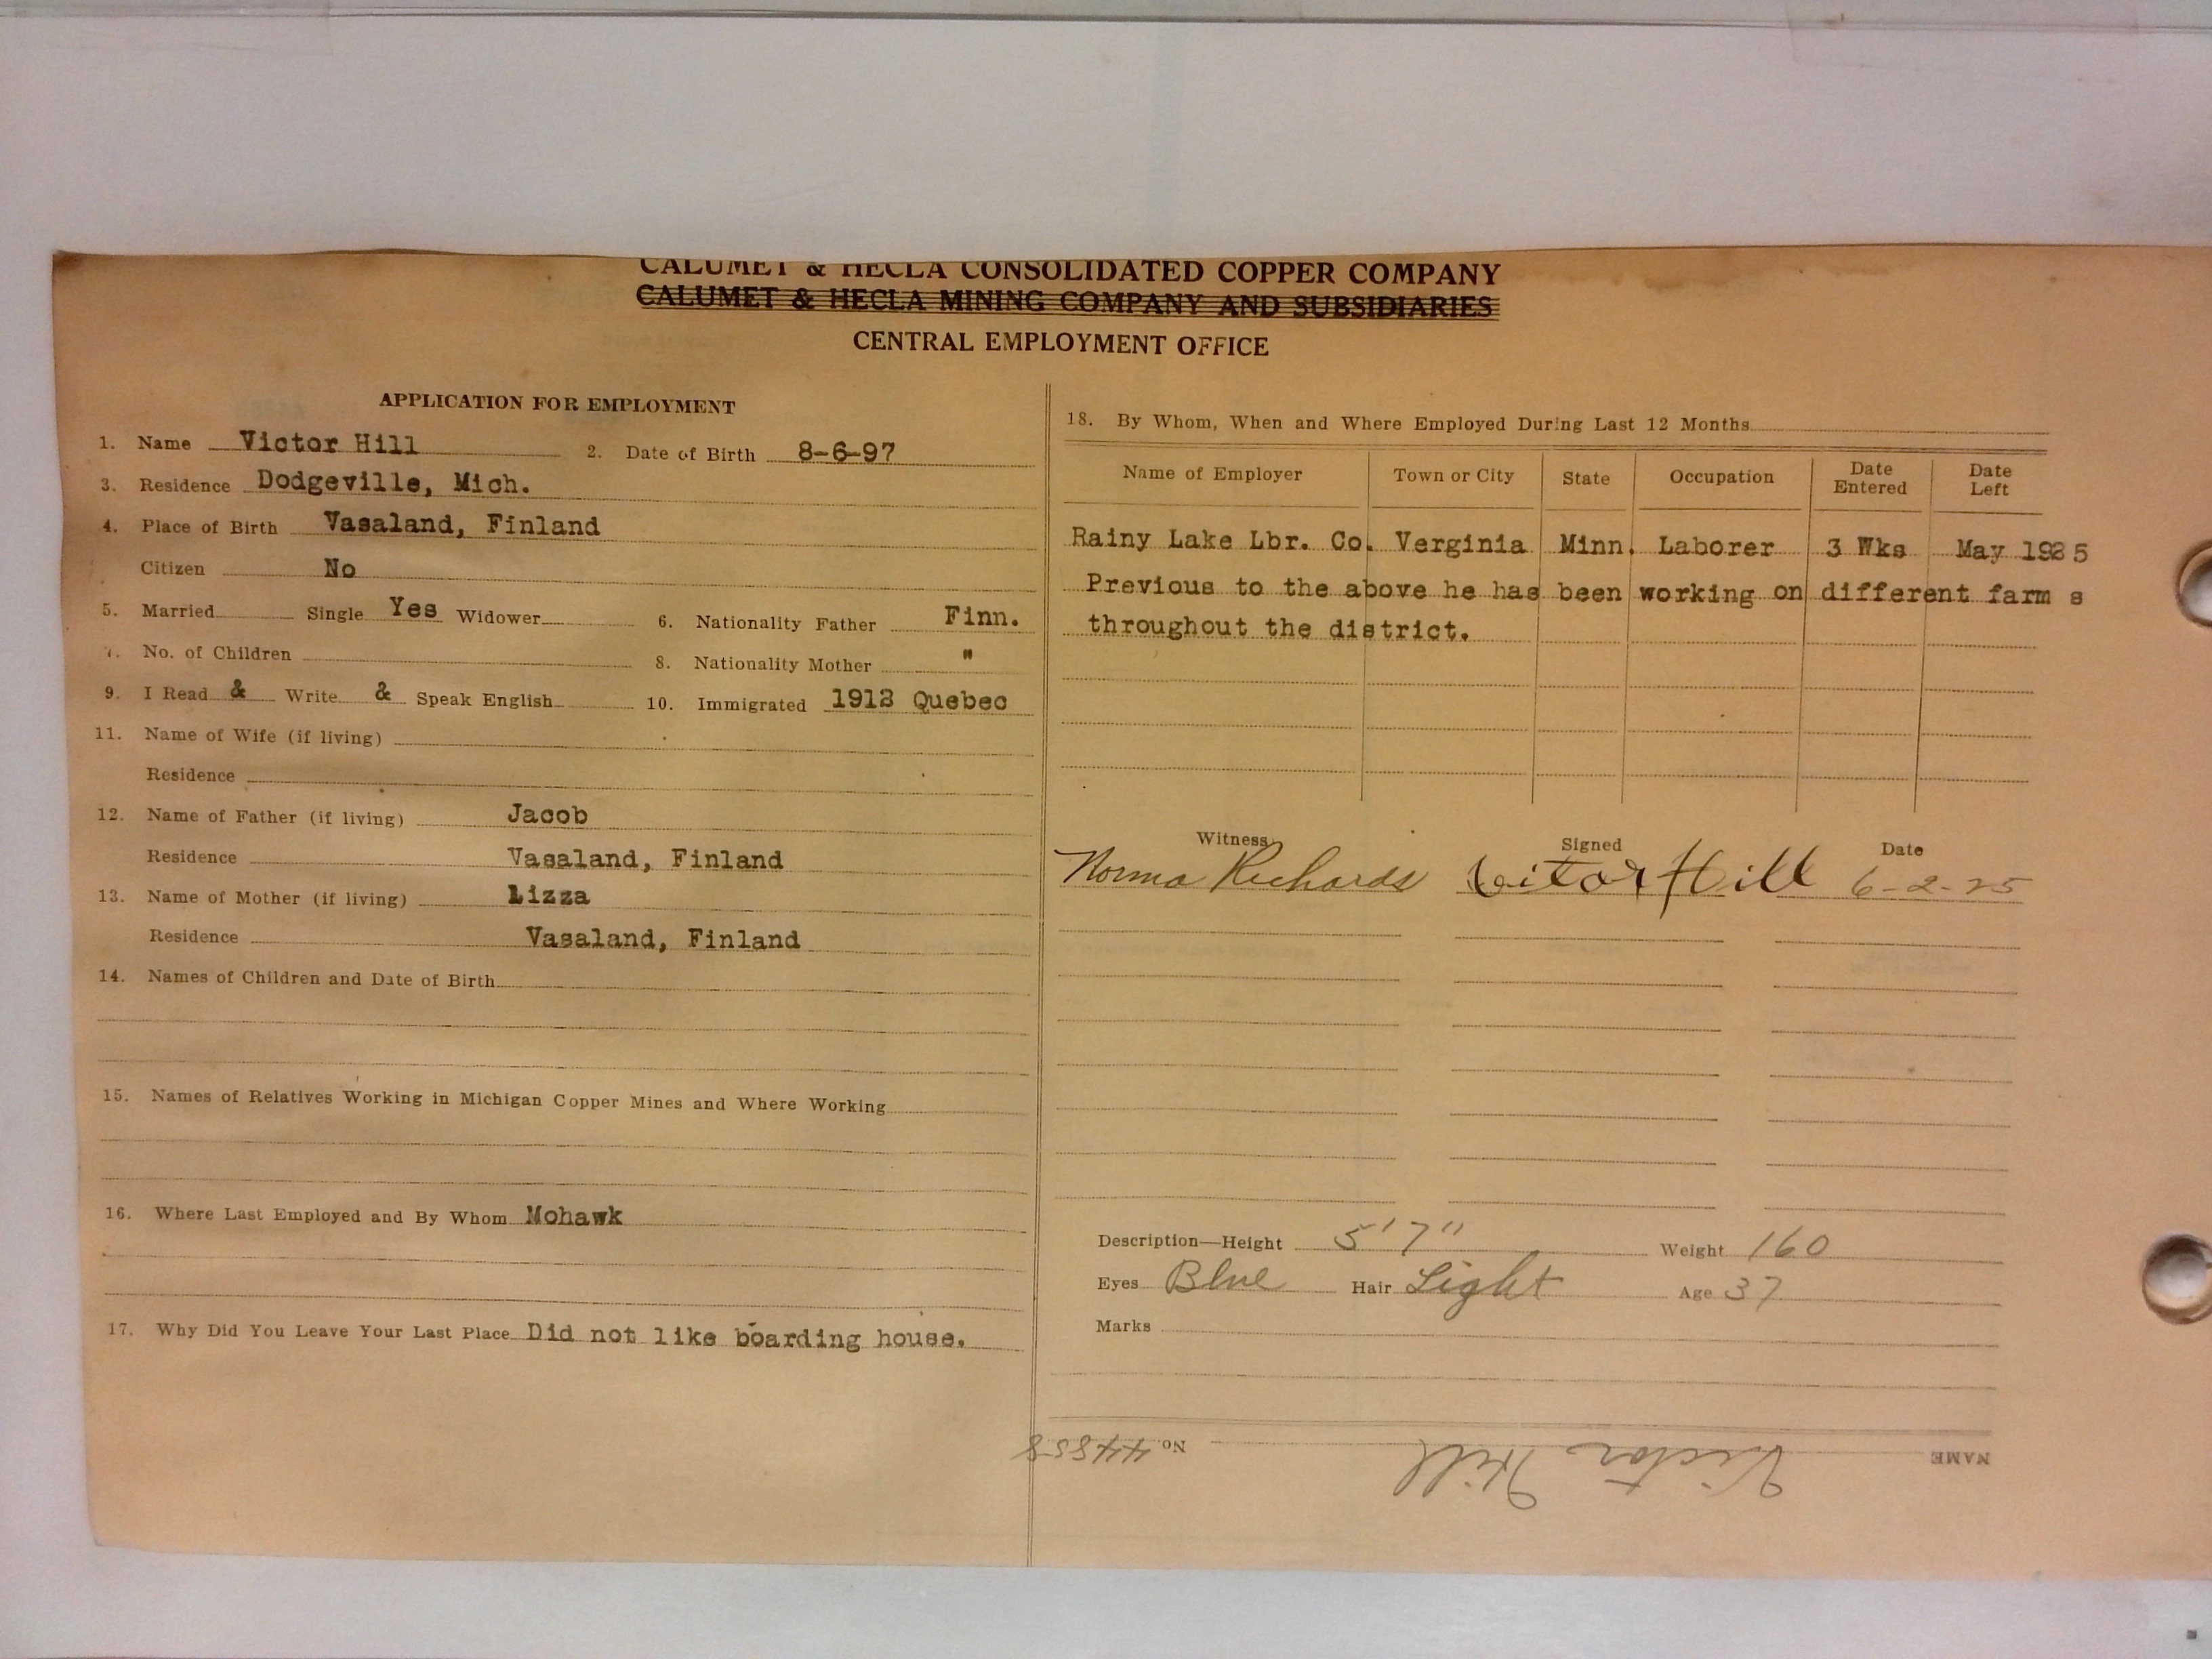 CALUMET & HECLA CONSOLIDATED COPPER COMPANY
CALUMET & HECLA MINING COMPANY AND SUBSIDIARIES
CENTRAL EMPLOYMENT OFFICE
APPLICATION FOR EMPLOYMENT
1. Name Victor Hill 2. Date of Birth 8-6-97
3. Residence Dodgeville, Mich.
4. Place of Birth Vasaland, Finland
Citizen No
5. Married Single Yes Widower 6. Nationality Father Finn.
7. No. of Children 8. Nationality Mother "
9. I Read & Write & Speak English 10. Immigrated 1912 Quebec
11. Name of Wife (if living)
Residence
12. Name of Father (if living) Jacob
Residence Vasaland, Finland
13. Name of Mother (if living) Lizza
Residence Vasaland, Finland
14. Names of Children and Date of Birth
15. Names of Relatives Working in Michigan Copper Mines and Where Working
16. Where Last Employed and By Whom Mohawk
17. Why Did You Leave Your Last Place Did not like boarding house.
18. By Whom, When and Where Employed During Last 12 Months
Name of Employer Town or City State Occupation Date Entered Date Left
Rainy Lake Lbr. Co. Verginia Minn. Laborer 3 Wks May 1925
Previous to the above he has been working on different farm s
throughout the district.
Witness Signed Date
Norma Richards Vitor Hill 6-2-25
Description—Height 5'7" Weight 160
Eyes Blue Hair Light Age 37
Marks
NAME Victor Hill No. 44858